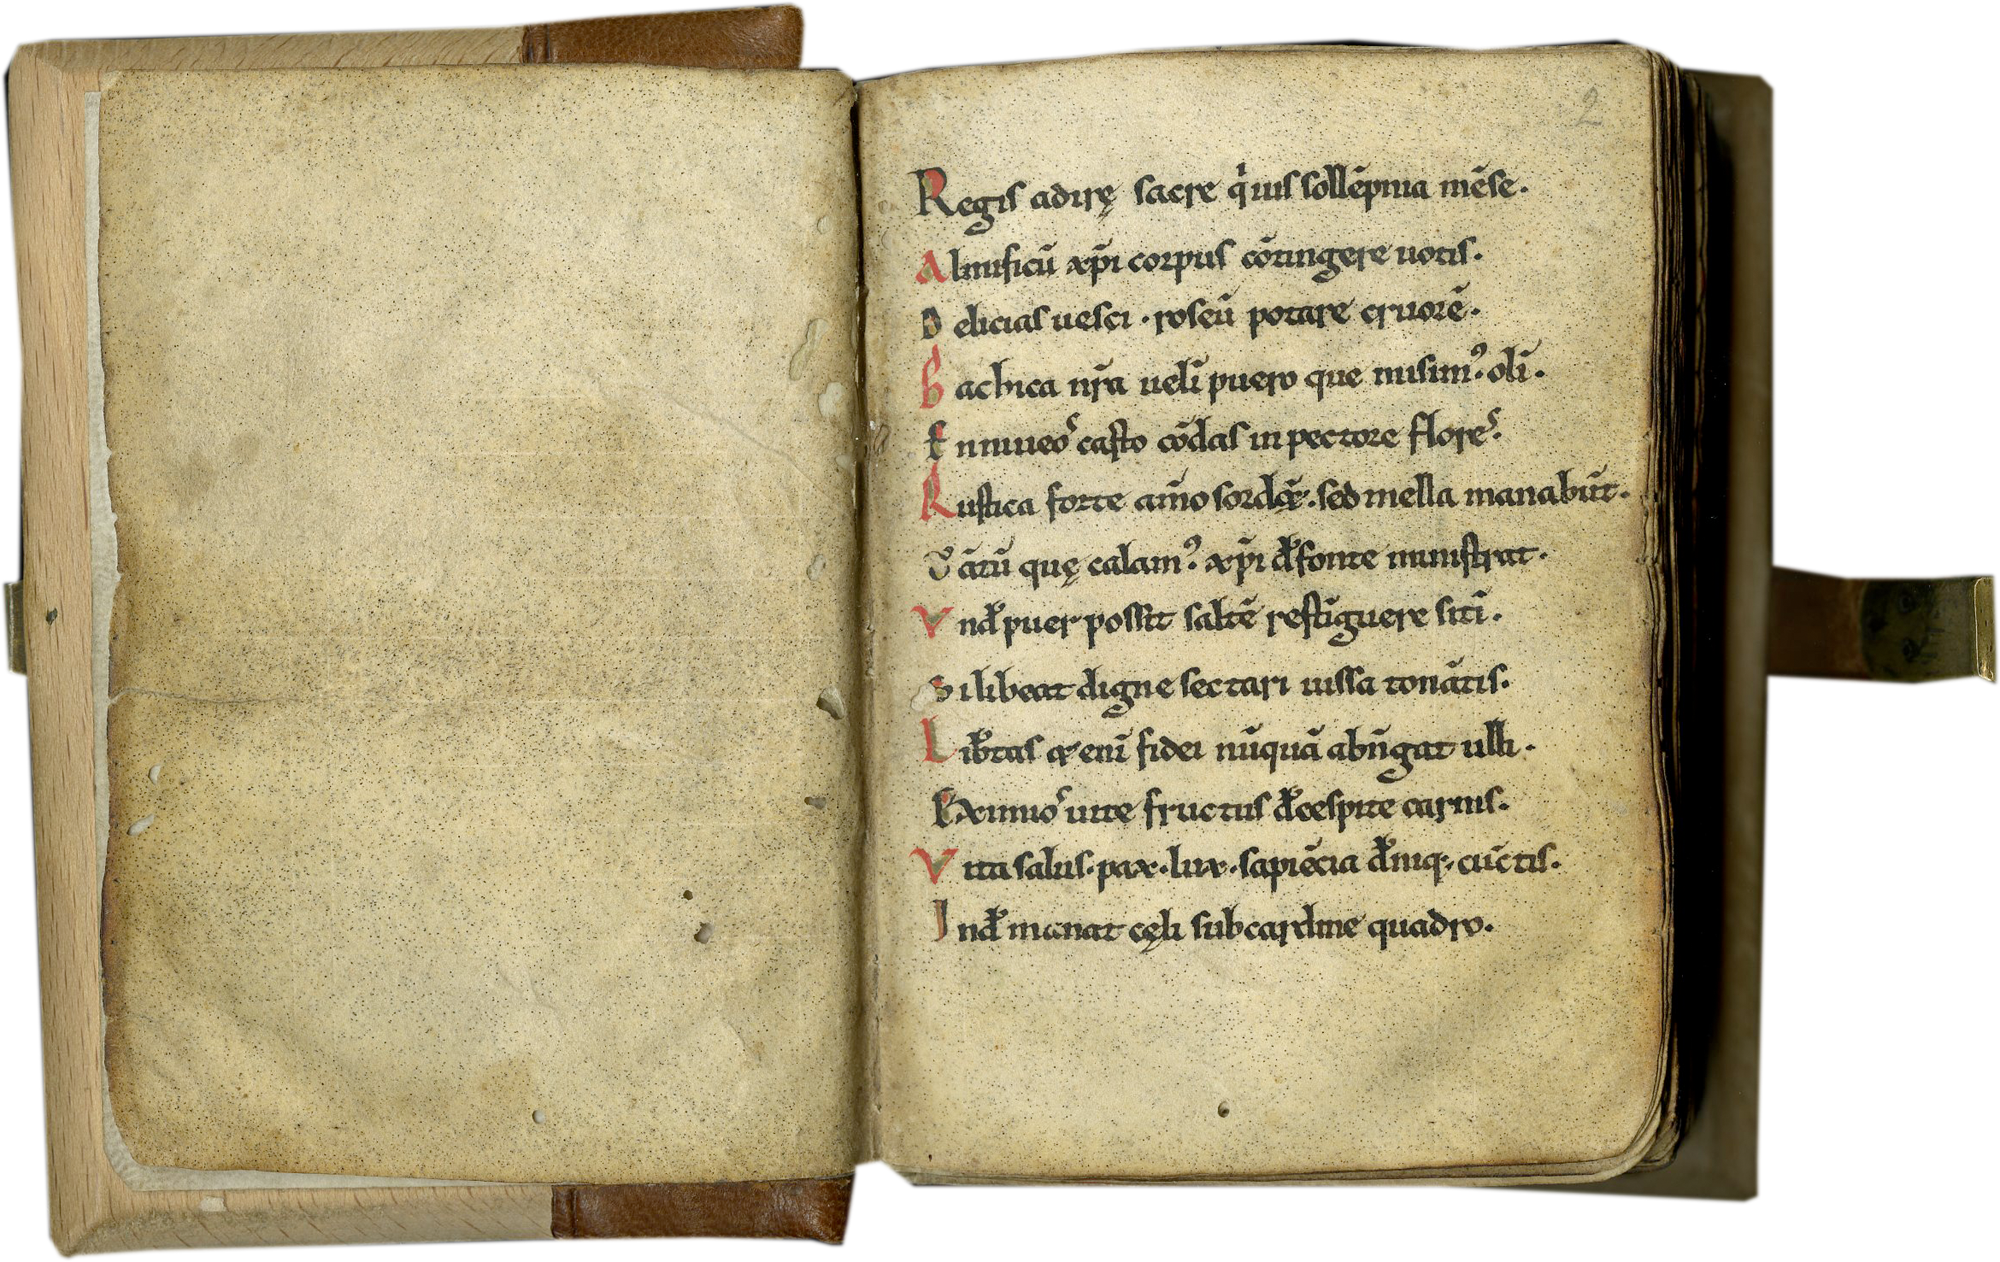 2
Regis adirę sacre q̇ uis sollēpnia mēse.
Almificū xp̄i corpus cōtingere uotis.
Delicias uesci · roseū potare cruorē.
Bachica nr̄a uelī puero que misim⁹ · olī.
E nniueoˢ casto cōdas in pectore floreˢ.
Rustica forte am̄o sordꝫ · sed mella manabūt.
Vatū quę calam⁹ · xp̄i đ fonte ministrat.
Vnđ puer possit saltē restīguere sitī.
Si libeat digne sectari iussa tonātis.
Lib̄tas enī fidei nūquā abn̄gat ulli.
Eximioˢ uite fructus đ cespite carnis.
Vita salus · pax · lux · sapiēcia đniq; cūctis.
Inđ manat cęli sub cardine quadro.